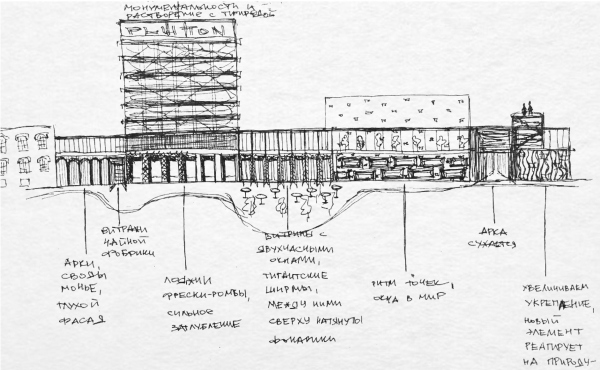 МОНУМЕНТАЛЬНОСТИ И
РАСТВОРЕНИЕ С ПРИРОДОЙ
ВИТРАЖИ
ЧАЙНОЙ
ФАБРИКИ
АРКИ,
СВОДЫ
МОНЬЕ,
ГЛУХОЙ
ФАСАД
ЛОДЖИИ
ФРЕСКИ-РОМБЫ,
СИЛЬНОЕ
ЗАГЛУБЛЕНИЕ
ВИТРИНЫ С
ОКНАМИ,
ГИГАНТСКИЕ
ШИРМЫ,
МЕЖДУ НИМИ
СВЕРХУ НАТЯНУТЫ
ФОНАРИКИ
РИТМ ТОЧЕК,
ОКНА В МИР
АРКА
СУЖАЕТСЯ
УВЕЛИЧИВАЕМ
УКРЕПЛЕНИЕ,
НОВЫЙ
ЭЛЕМЕНТ
РЕАГИРУЕТ
НА ПРИРОДУ-